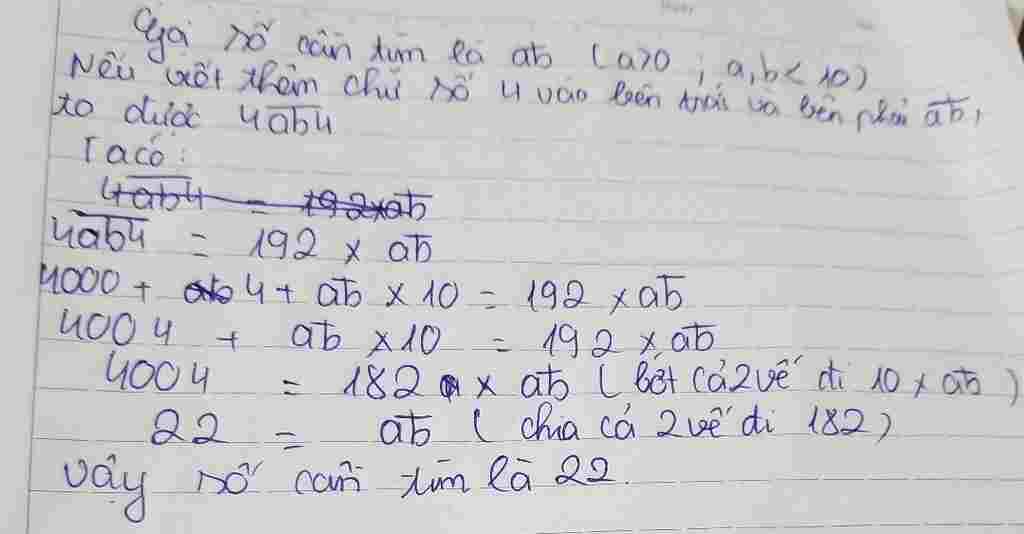 Gọi số cần tìm là ab (a>0 ; a,b< 10)
Nếu viết thêm chữ số 4 vào bên trái và bên phải ab,
ta được 4ab4
Ta có:
4ab4 = 192×ab
4ab4 = 192 × ab
4000 + 4 + ab × 10 = 192 × ab
4004 + ab × 10 = 192 × ab
4004 = 182 × ab ( bớt cả 2 vế đi 10 × ab )
22 = ab ( chia cả 2 vế đi 182)
Vậy số cần tìm là 22.